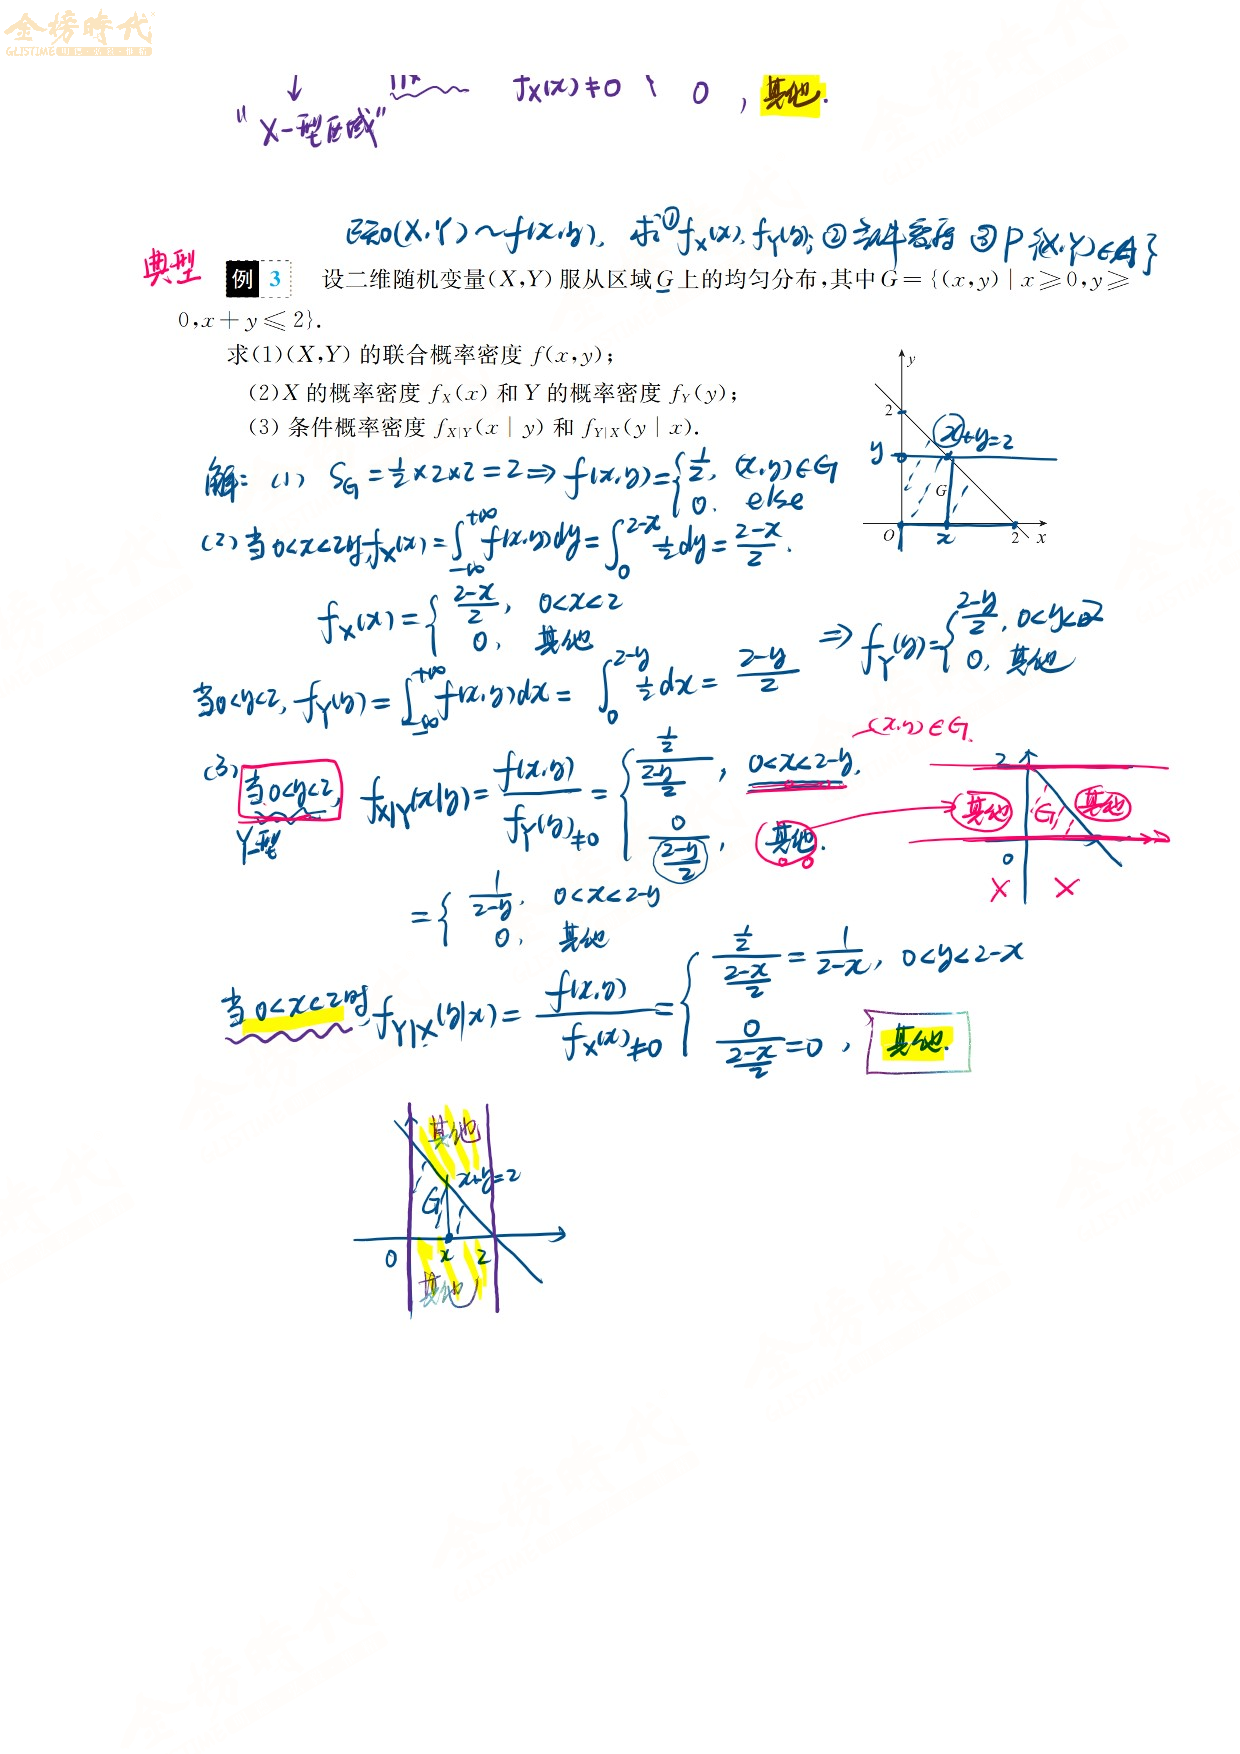 金榜時代
GLISTIME
↓ f_X(x)≠0 0 , 其他.
"X-型区域"
已知(X,Y)~f(x,y), 求①f_X(x), f_Y(y); ②条件密度 ③P{(X,Y)∈A}
典型
例 3 设二维随机变量(X,Y)服从区域G上的均匀分布,其中G={(x,y)|x≥0,y≥
0,x+y≤2}.
求(1)(X,Y)的联合概率密度 f(x,y);
(2)X 的概率密度 f_X(x) 和 Y 的概率密度 f_Y(y);
(3) 条件概率密度 f_{X|Y}(x|y) 和 f_{Y|X}(y|x).
y
2
x+y=2
y
G
O x 2 x
解: (1) S_G=1/2×2×2=2⇒f(x,y)={1/2, (x,y)∈G
0, else
(2)当0<x<2时,f_X(x)=∫_{-∞}^{+∞}f(x,y)dy=∫_0^{2-x}1/2dy=(2-x)/2.
f_X(x)={(2-x)/2, 0<x<2
0, 其他
当0<y<2, f_Y(y)=∫_{-∞}^{+∞}f(x,y)dx=∫_0^{2-y}1/2dx=(2-y)/2
⇒f_Y(y)={(2-y)/2, 0<y<2
0, 其他
(3)当0<y<2, f_{X|Y}(x|y)=f(x,y)/f_Y(y)≠0={(1/2)/((2-y)/2), 0<x<2-y,
(x,y)∈G.
Y-型
0/((2-y)/2), 其他.
2
其他 G 其他
0
× ×
={1/(2-y), 0<x<2-y
0, 其他
当0<x<2时,f_{Y|X}(y|x)=f(x,y)/f_X(x)≠0={(1/2)/((2-x)/2)=1/(2-x), 0<y<2-x
0/((2-x)/2)=0, 其他.
其他
x+y=2
G
0 x 2
其他